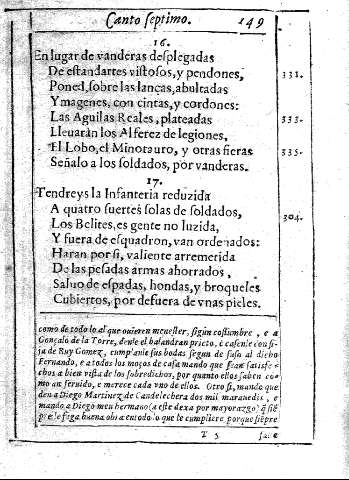 Canto septimo. 149
16.
En lugar de vanderas desplegadas
De estandartes vistosos, y pendones, 331.
Poned, sobre las lanças, abultadas
Ymagenes, con cintas, y cordones:
Las Aguilas Reales, plateadas 333.
Lleuarán los Alferez de legiones,
El Lobo, el Minotauro, y otras fieras 335.
Señalo a los soldados, por vanderas.
17.
Tendreys la Infanteria reduzida
A quatro suertes solas de soldados, 304.
Los Belites, es gente no luzida,
Y fuera de esquadron, van ordenados:
Haran por si, valiente arremerida
De las pesadas armas ahorrados,
Saluo de espadas, hondas, y broqueles
Cubiertos, por defuera de vnas pieles.
como de todo lo al que ouieren menester, sigũn costumbre, e a
Gonçalo de la Torre, denle el balandran prieto, e casenle con si-
ja de Ruy Gomez, cumplanle sus bodas segun de suso al dicho
Fernando, e a todos los moços de casa mando que sean satisfe-
chos a bien vista de los sobredichos, por quanto ellos saben co-
mo an seruido, e merece cada vno de ellos. Otro si, mando que
den a Diego Martinez de Candelechera dos mil marauedis, e
mando a Diego meu hermano (a este dexa por mayorazgo) q̃
pre le faga buena obra en todo lo que le cumpliere porque siẽpre
T 3 fue